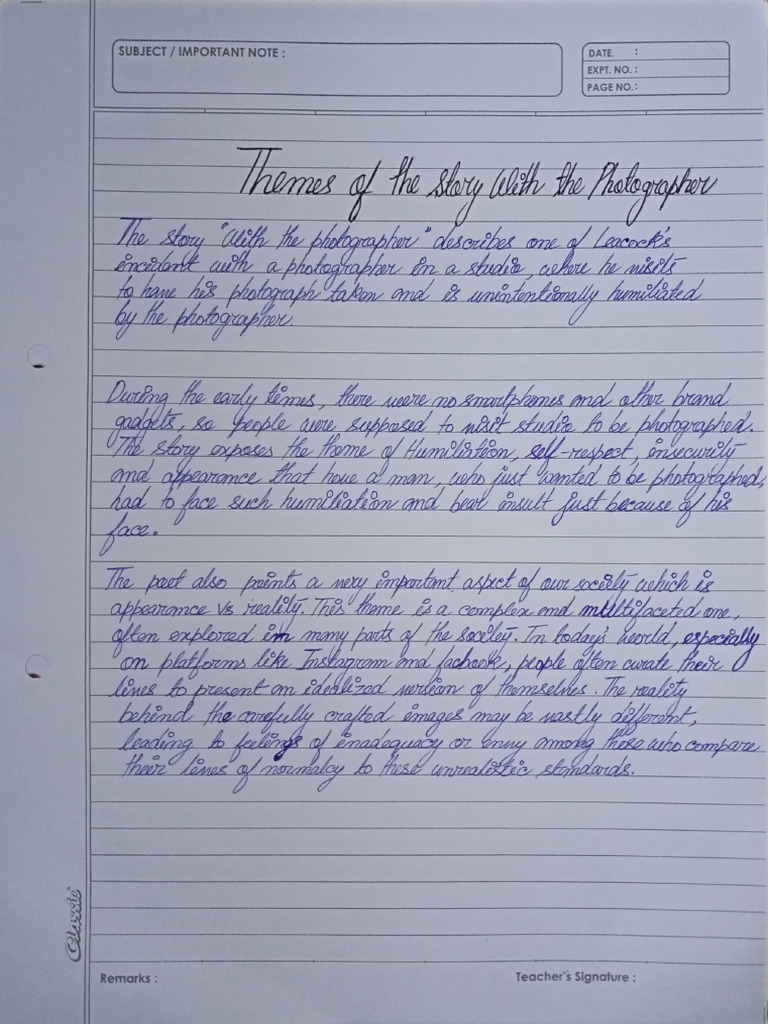 SUBJECT / IMPORTANT NOTE :
DATE. :
EXPT. NO. :
PAGE NO.:
Themes of the story With the Photographer
The story "With the photographer" describes one of Leacock's
incidant with a photographer in a studio, where he visits
to have his photograph taken and is unintentionally humiliated
by the photographer.
During the early times, there were no smartphones and other brand
gadgets, so people were supposed to visit studio to be photographed.
The story exposes the theme of Humiliation, self-respect, insecurity
and appearance that have a man, who just wanted to be photographed,
had to face such humiliation and bear insult just because of his
face.
The poet also points a very important aspect of our society which is
appearance vs reality. This theme is a complex and multifaceted one,
often explored in many parts of the society. In today's world, especially
on platforms like Instagram and facbook, people often curate their
lives to present an idealized version of themselves. The reality
behind the carefully crafted images may be vastly different,
leading to feelings of inadequacy or envy among those who compare
their lives of normalcy to these unrealistic standards.
Classic
Remarks :
Teacher's Signature :